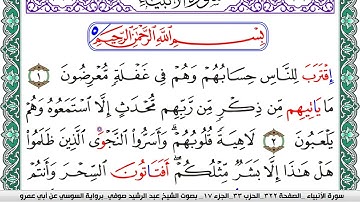 سُورَةُ الأَنبِيَاءِ
بِسْمِ اللَّهِ الرَّحْمَٰنِ الرَّحِيمِ
اِقْتَرَبَ لِلنَّاسِ حِسَابُهُمْ وَهُمْ فِي غَفْلَةٍ مُعْرِضُونَ ١
مَا يَاتِيهِم مِّن ذِكْرٍ مِّن رَّبِّهِم مُّحْدَثٍ إِلَّا اسْتَمَعُوهُ وَهُمْ
يَلْعَبُونَ ٢ لَاهِيَةً قُلُوبُهُمْ وَأَسَرُّوا النَّجْوَى الَّذِينَ ظَلَمُوا
هَلْ هَٰذَا إِلَّا بَشَرٌ مِّثْلُكُمْ أَفَتَاتُونَ السِّحْرَ وَأَنتُمْ
سورة الأنبياء _الصفحة ٣٢٢_الحزب ٣٣_الجزء ١٧_ بصوت الشيخ عبد الرشيد صوفي_برواية السوسي عن أبي عمرو